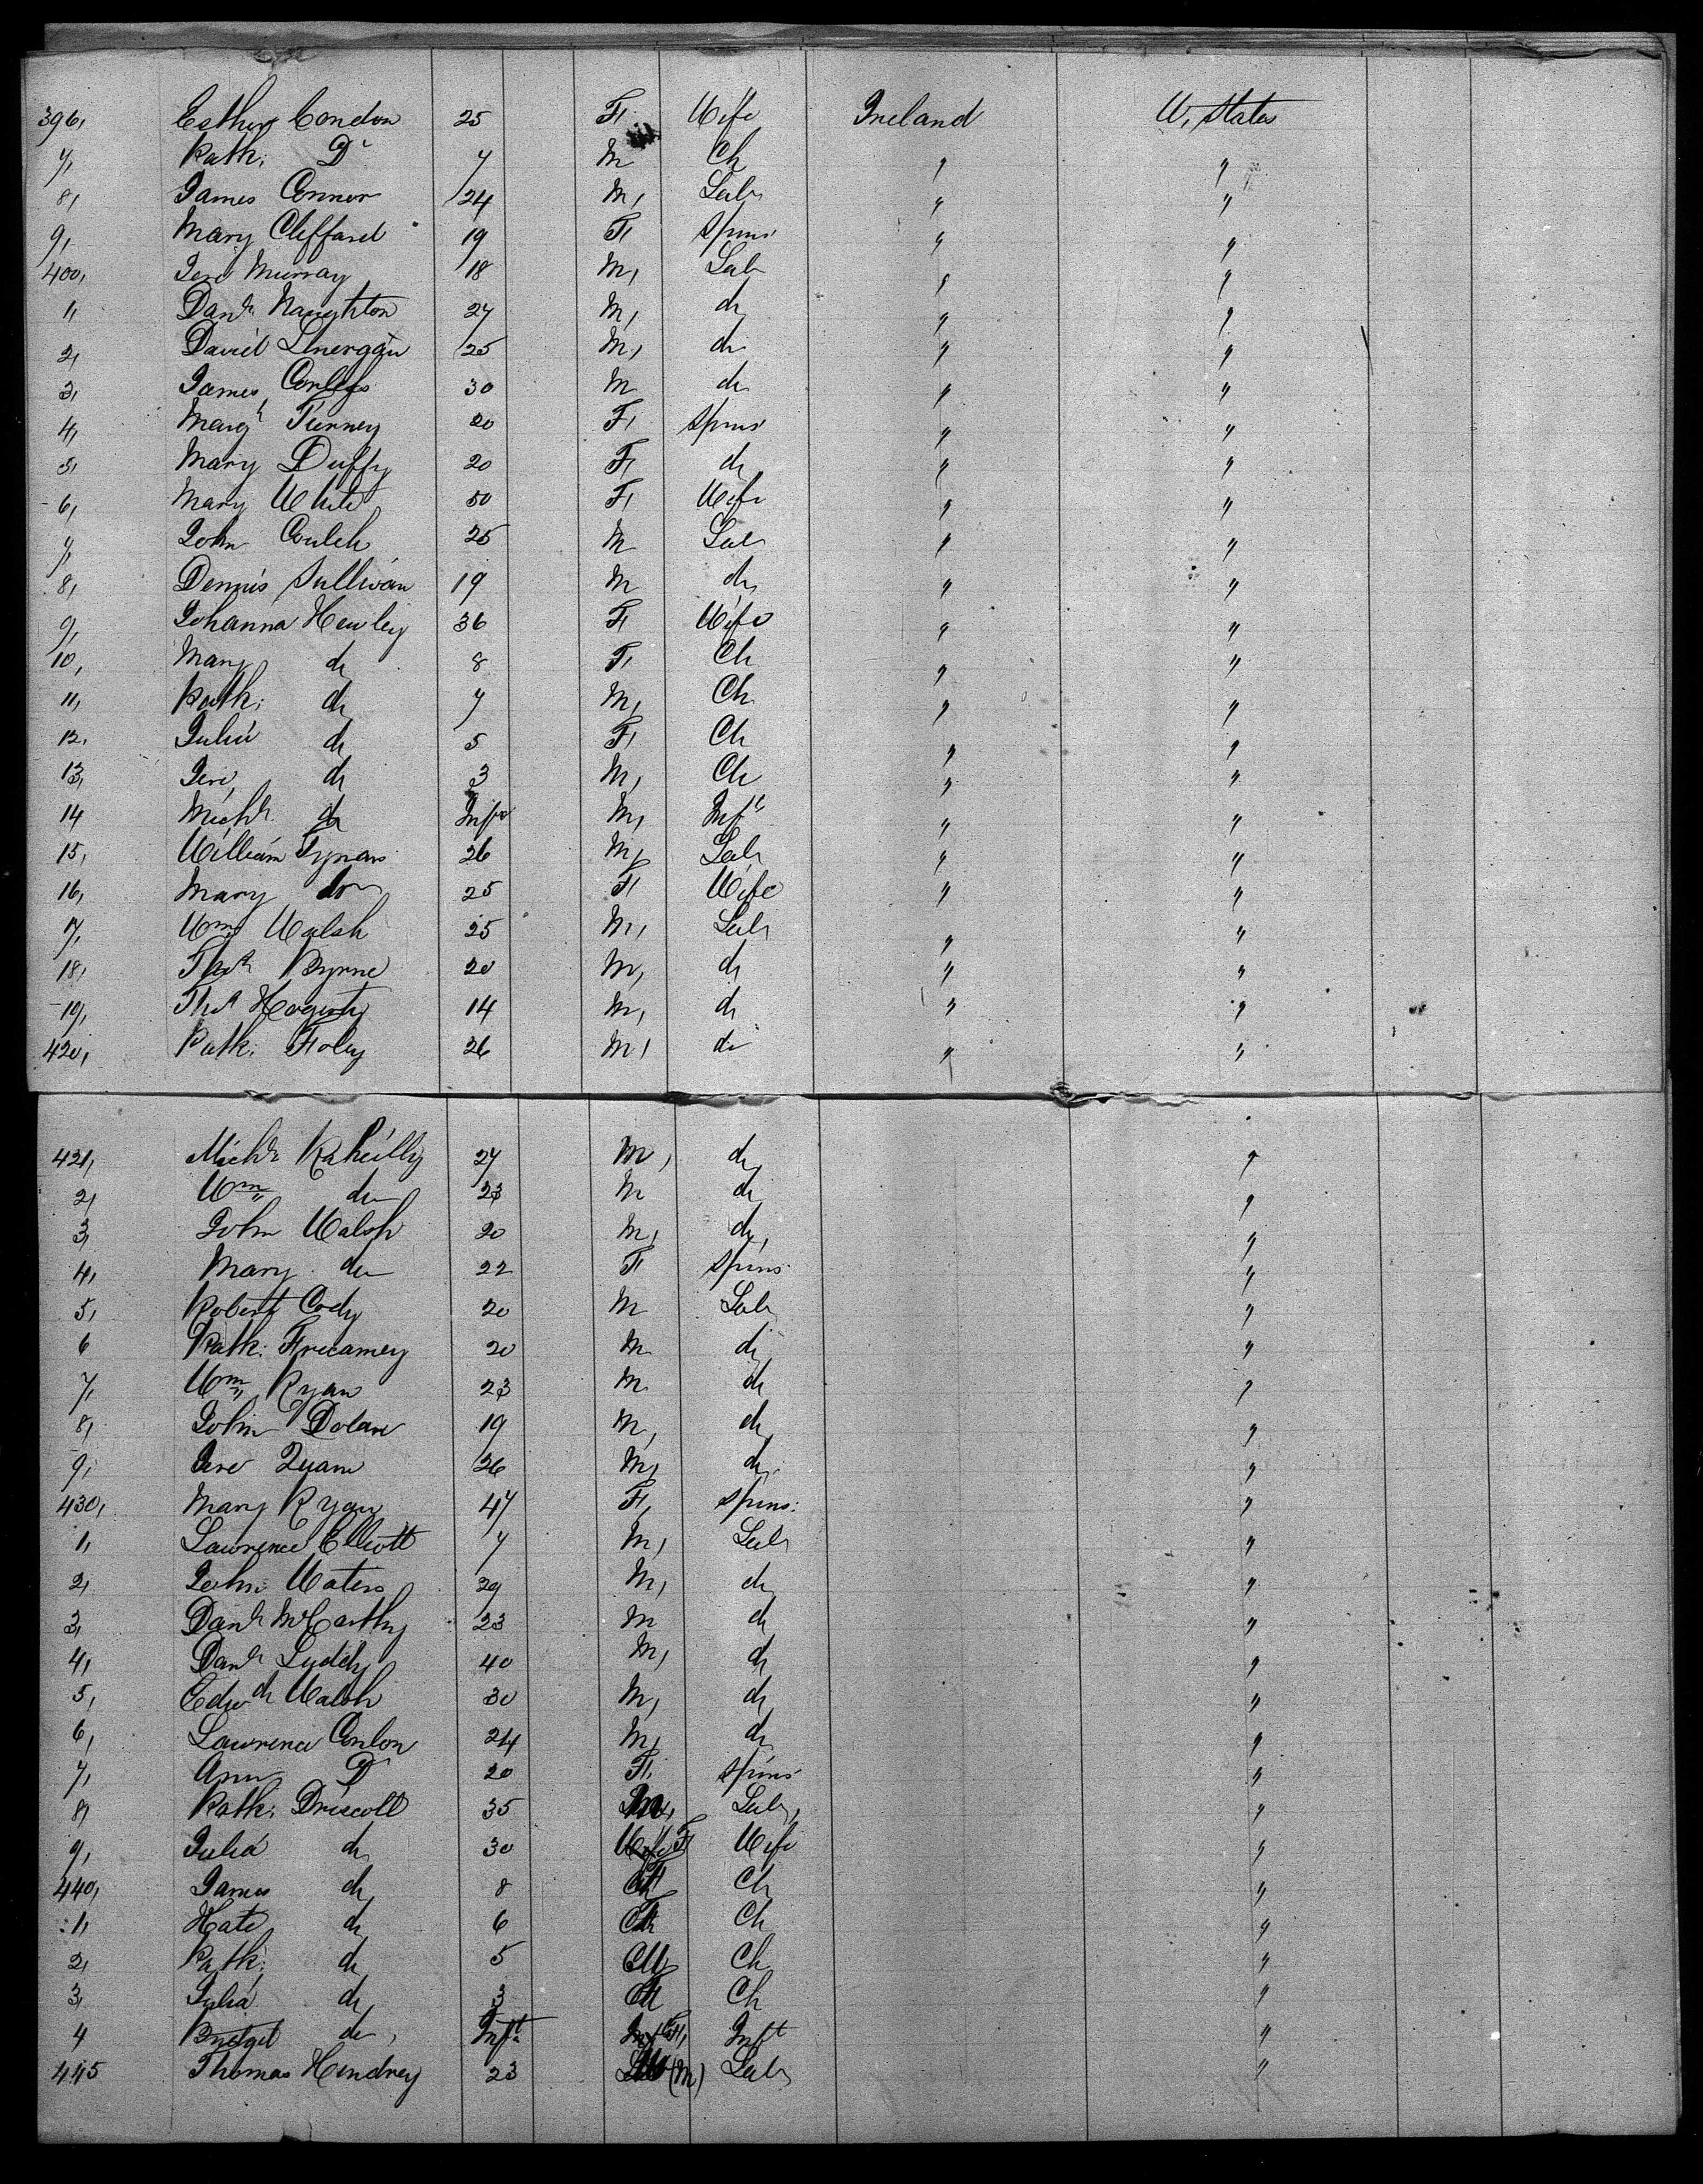 396, Esther Condon 25 F. Wife Ireland U. States
7, Patk: Do 7 M Ch " "
8, James Connor 24 M, Labr " "
9, Mary Cliffard 19 F, Spins " "
400, Jere Murray 18 M, Lab " "
1, Danl Naughton 27 M, do " "
2, David Lonergan 25 M, do " "
3, James 30 M do " "
4, Margt Tierney 20 F, Spins " "
5, Mary Duffy 20 F, do " "
6, Mary White 50 F, Wife " "
7, John 25 M Lab " "
8, Dennis Sullivan 19 M do " "
9, Johanna Hewley 36 F, Wife " "
10, Mary do 8 F, Ch " "
11, Patk: do 7 M, Ch " "
12, Julia do 5 F, Ch " "
13, Jere, do 3 M, Ch " "
14 Michl do Inft M, Inft " "
15, William Tynan 26 M, Lab " "
16, Mary do 25 F, Wife " "
17, Wm Walsh 25 M, Lab " "
18, Byrne 20 M, do " "
19, Thos Hogerty 14 M, do " "
420, Patk: Foley 26 M, do " "
421, Michl Raheilly 27 M, do "
2, Wm do 23 M do "
3, John Walsh 20 M, do, "
4, Mary do 22 F, Spins "
5, Robert Cody 20 M Lab "
6 Patk: 20 M do "
7, Wm Ryan 23 M do "
8, John Dolan 19 M, do "
9, Jere Quann 26 M, do "
430, Mary Ryan 47 F, Spins: "
1, Lawrence Elliott 7 M, Lab "
2, John Waters 29 M, do "
3, Danl McCarthy 23 M do "
4, Danl Luddy 40 M, do "
5, Edwd Walsh 30 M, do "
6, Lawrence Conlon 24 M, do "
7, Ann Do 20 F, Spins "
8, Patk: Driscoll 35 M, Lab, "
9, Julia do 30 F Wife "
440, James do 8 Ch "
1, Kate do 6 F Ch "
2, Patk: do 5 M Ch "
3, Julia do 3 F Ch "
4 Bridget do, Inft F, Inft "
445 Thomas Hendrey 23 (M) Lab "